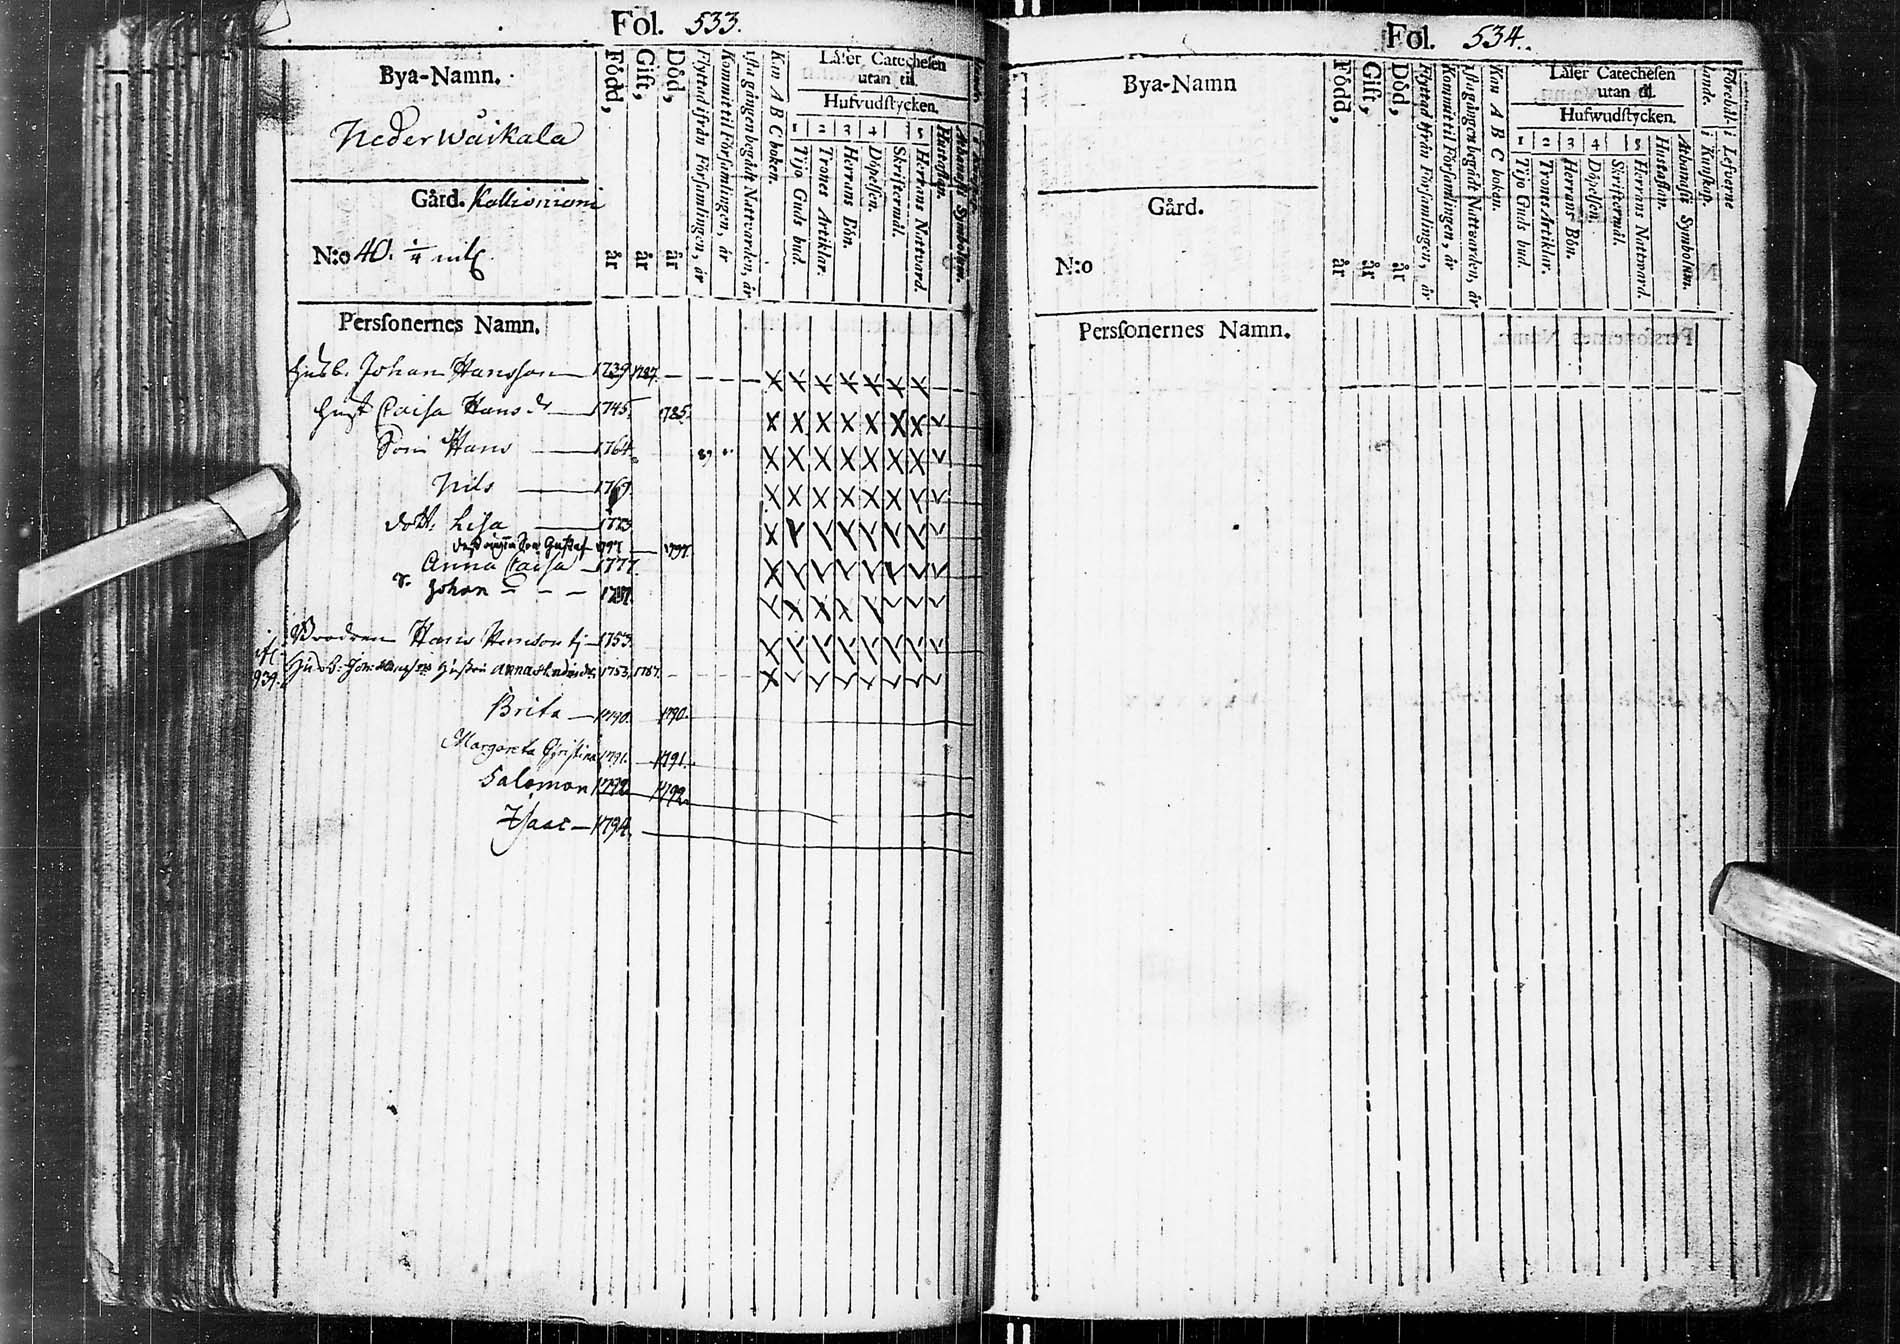 Fol. 533.
Bya-Namn.
Neder Wäikala
Gård. Kallioniemi
N:o 40. 1/4 mtl
Persſonernes Namn.
Född, år
Gift, år
Död, år
Flyttad ifrån Förſamlingen, år
Kommit til Förſamlingen, år
1ſta gången begådt Nattvarden, år
Kan A B C boken.
Läſer Catecheſen
utan til.
Hufvudſtycken.
1 2 3 4 5
Tijo Guds bud.
Trones Artiklar.
Herrans Bön.
Döpelſen.
Skriftermål.
Herrans Nattvard.
Huſtaflan.
Athanaſii Symbolum.
Husb. Johan Hansson 1739 1787.
Hust Caisa Hans dr 1745. 1785.
Son Hans 1764.
Nils 1769.
dott. Lisa 1773
Son Gustaf 1797 1797.
Anna Caisa 1777.
s. Johan 1781.
Brodren Hans 1753.
939. Husb: Joh: Hansson Hustru Anna 1753. 1787.
Brita 1790. 1790.
Margareta Christina 1791. 1791.
Salomon 1792 1792.
Isaac 1794.
Fol. 534.
Bya-Namn
Gård.
N:o
Persſonernes Namn.
Född, år
Gift, år
Död, år
Flyttad ifrån Förſamlingen, år
Kommit til Förſamlingen, år
1ſta gången begådt Nattvarden, år
Kan A B C boken.
Läſer Catecheſen
utan til.
Hufwudſtycken.
1 2 3 4 5
Tijo Guds bud.
Trones Artiklar.
Herrans Bön.
Döpelſen.
Skriftermål.
Herrans Nattvard.
Huſtaflan.
Athanaſii Symbolum.
i Kunſkap.
i Lefverne